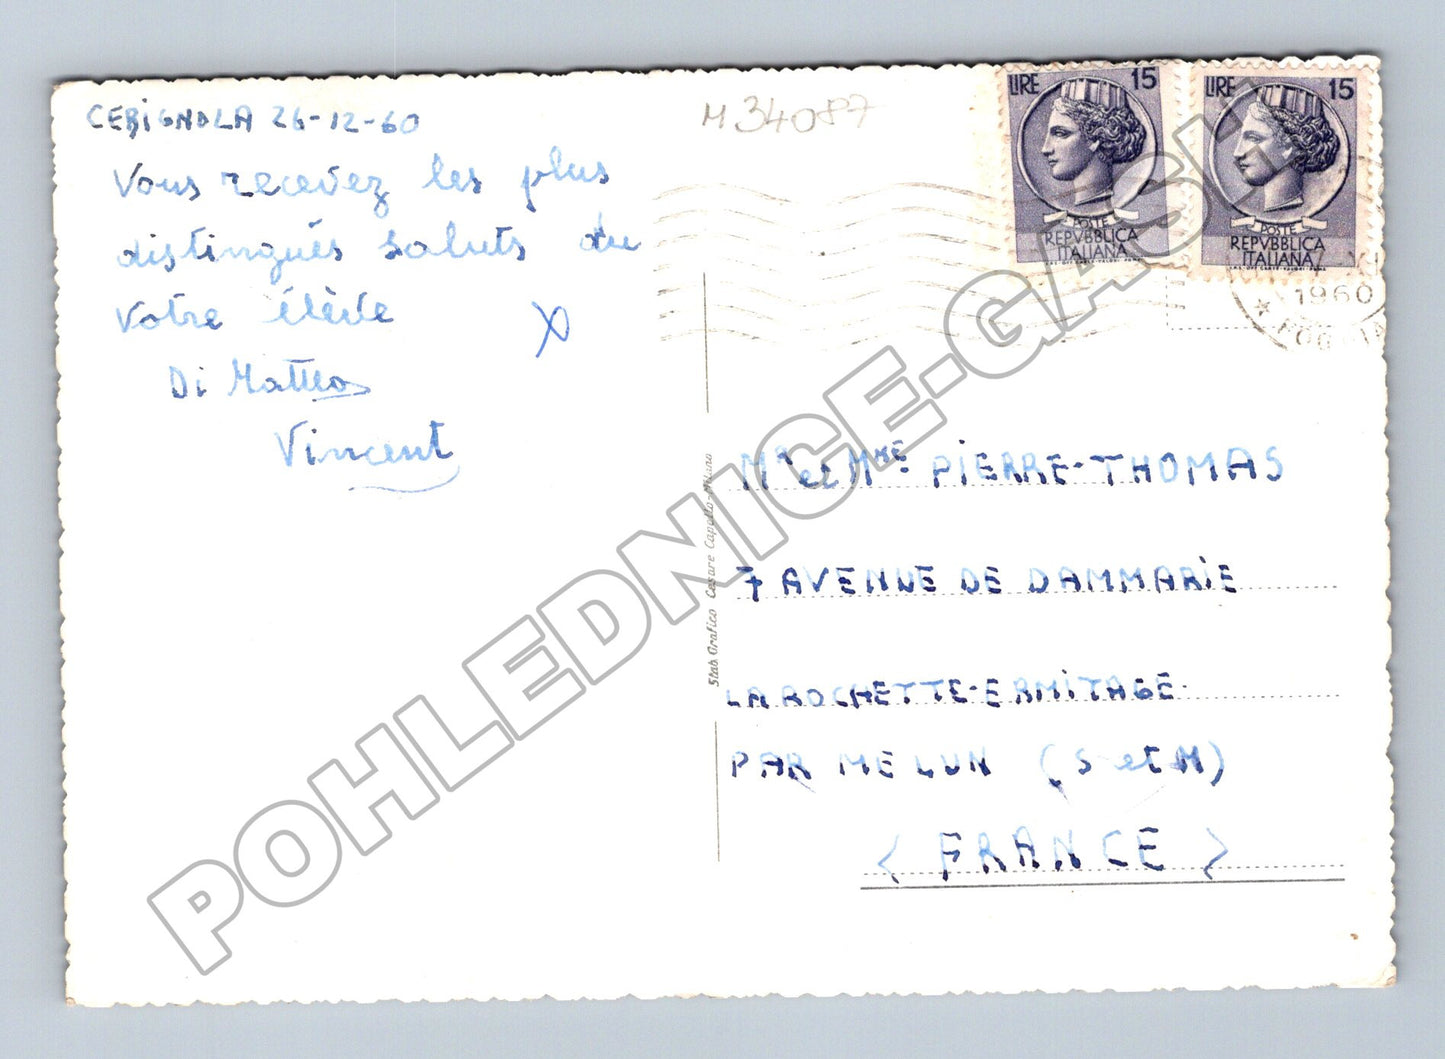 CERIGNOLA 26-12-60
Vous recevez les plus
distingués saluts du
votre élève
Di Matteo
Vincent
M34087
LIRE 15
POSTE
REPVBBLICA
ITALIANA
LIRE 15
POSTE
REPVBBLICA
ITALIANA
1960
FOGGIA
Mr et Mme PIERRE-THOMAS
7 AVENUE DE DAMMARIE
LA ROCHETTE-ERMITAGE.
PAR MELUN (S et M)
(FRANCE)
Stab. Grafico Cesare Capello-Milano
POHLEDNICE-GASH